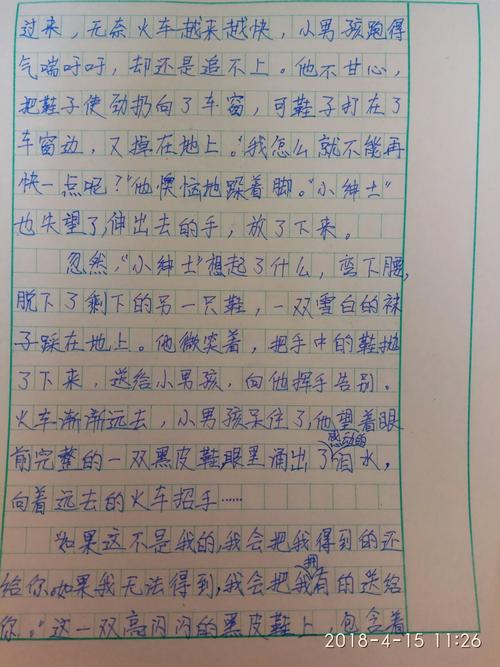 过来，无奈火车越来越快，小男孩跑得
气喘吁吁，却还是追不上。他不甘心，
把鞋子使劲扔向了车窗，可鞋子打在了
车窗边，又掉在地上。“我怎么就不能再
快一点呢？”他懊恼地跺着脚。“小绅士”
也失望了，伸出去的手，放了下来。
忽然，“小绅士”想起了什么，弯下腰，
脱下了剩下的另一只鞋，一双雪白的袜
子踩在地上。他微笑着，把手中的鞋抛
了下来，送给小男孩，向他挥手告别。
火车渐渐远去，小男孩呆住了，他望着眼
前完整的一双黑皮鞋眼里涌出了感动的泪水，
向着远去的火车招手……
如果这不是我的，我会把我得到的还
给你。如果我无法得到，我会把我拥有的送给
你。”这一双亮闪闪的黑皮鞋上，包含着
2018-4-15 11:26